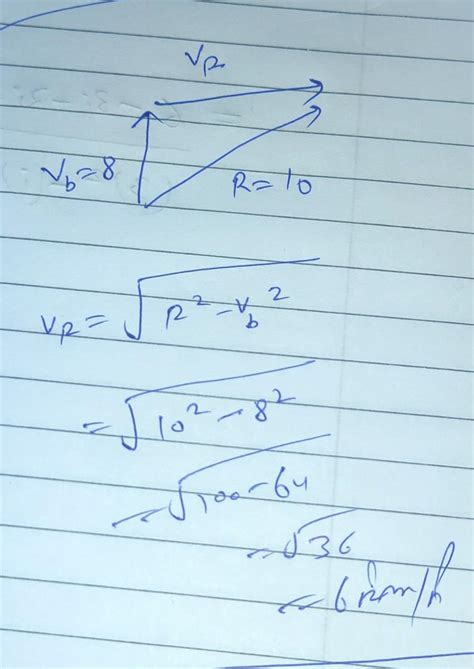 V_R
V_b = 8
R = 10
V_R = √(R² - V_b²)
= √(10² - 8²)
= √(100 - 64)
= √36
= 6 km/h